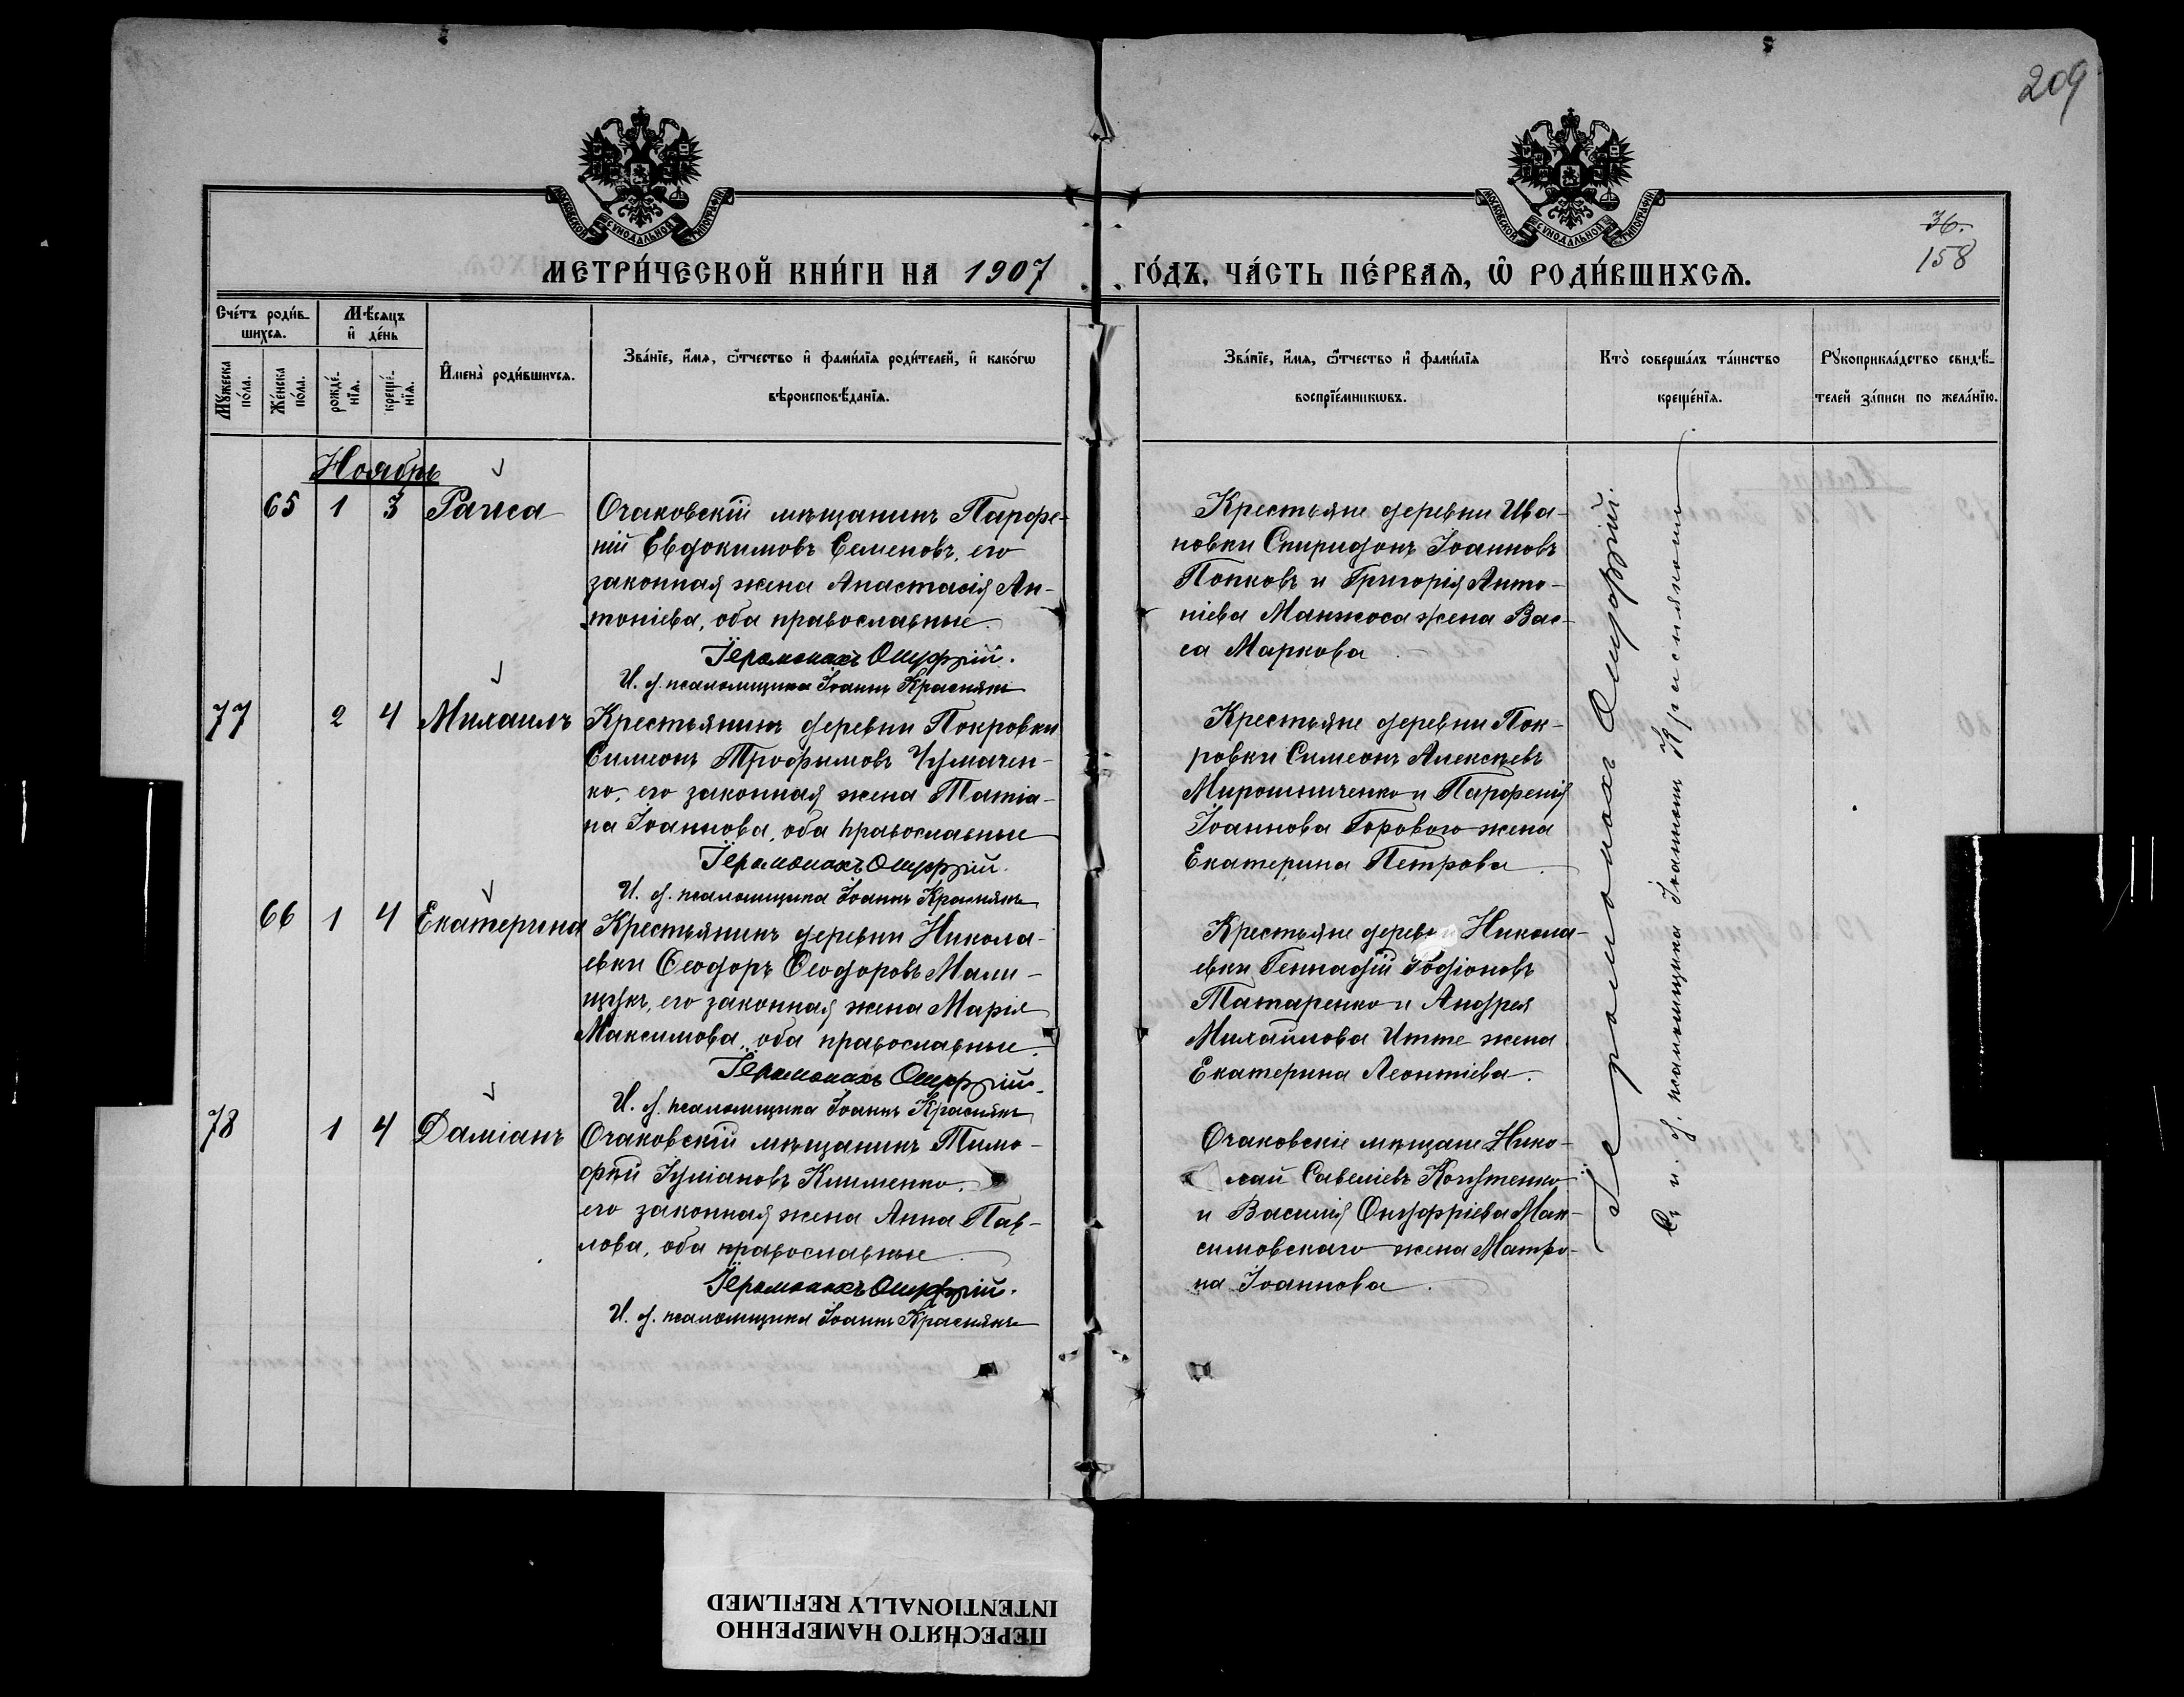 209
МОСКОВСКОЙ СУНОДАЛЬНОЙ ТИПОГРАФІИ
МОСКОВСКОЙ СУНОДАЛЬНОЙ ТИПОГРАФІИ
36.
158
МЕТРИ́ЧЕСКОЙ КНИ́ГИ НА 1907 ГО́ДЪ, ЧА́СТЬ ПЕ́РВАѦ, Ѡ҆ РОДИ́ВШИХСѦ.
Сче́тъ роди́в-
шихсѧ.
Мꙋ́жеска по́ла.
Же́нска по́ла.
Мѣ́сѧцъ
и҆ де́нь
рожде́-
нїѧ.
креще́-
нїѧ.
И҆мена̀ роди́вшихсѧ.
Зва́нїе, и҆́мѧ, ѻ҆́тчество и҆ фами́лїѧ роди́телей, и҆ како́гѡ
вѣроисповѣ́данїѧ.
Зва́нїе, и҆́мѧ, ѻ҆́тчество и҆ фами́лїѧ
воспрїе́мникѡвъ.
Кто̀ соверша́лъ та́инство
креще́нїѧ.
Рꙋкоприкла́дство свидѣ́-
телей за́писи по жела́нїю.
Ноябрь
65 1 3 Раиса
Очаковскій мѣщанинъ Парѳе-
ній Евдокимовъ Семеновъ, его
законная жена Анастасія Ан-
тоніева, оба православные.
Іеромонахъ Онуфрій.
И. д. псаломщика Іоаннъ Краснякъ
Крестьяне деревни Ива-
новки Спиридонъ Іоанновъ
Попковъ и Григорія Анто-
ніева Манжоса жена Вас-
са Маркова
77 2 4 Михаилъ
Крестьянинъ деревни Покровки
Симеонъ Трофимовъ Чумачен-
ко, его законная жена Татіа-
на Іоаннова, оба православные
Іеромонахъ Онуфрій.
И. д. псаломщика Іоаннъ Краснякъ
Крестьяне деревни Пок-
ровки Симеонъ Алексѣевъ
Мирошниченко и Парѳенія
Іоаннова Горового жена
Екатерина Петрова.
66 1 4 Екатерина
Крестьянинъ деревни Никола-
евки Ѳеодоръ Ѳеодоровъ Мали-
щукъ, его законная жена Марія
Максимова, оба православные.
Іеромонахъ Онуфрій.
И. д. псаломщика Іоаннъ Краснякъ
Крестьяне деревни Никола-
евки Геннадій Родіоновъ
Татаренко и Андрея
Михайлова Итте жена
Екатерина Леонтіева.
78 1 4 Даміанъ
Очаковскій мѣщанинъ Тимо-
фей Іуліановъ Клименко,
его законная жена Анна Пав-
лова, оба православные
Іеромонахъ Онуфрій.
И. д. псаломщика Іоаннъ Краснякъ
Очаковскіе мѣщане Нико-
лай Савеліевъ Кошутенко
и Василія Онуфріева Мак-
симовскаго жена Матро-
на Іоаннова.
Іеромонахъ Онуфрій.
Съ и. д. псаломщика Іоанномъ Краснякомъ
ПЕРЕСНЯТО НАМЕРЕННО
INTENTIONALLY REFILMED